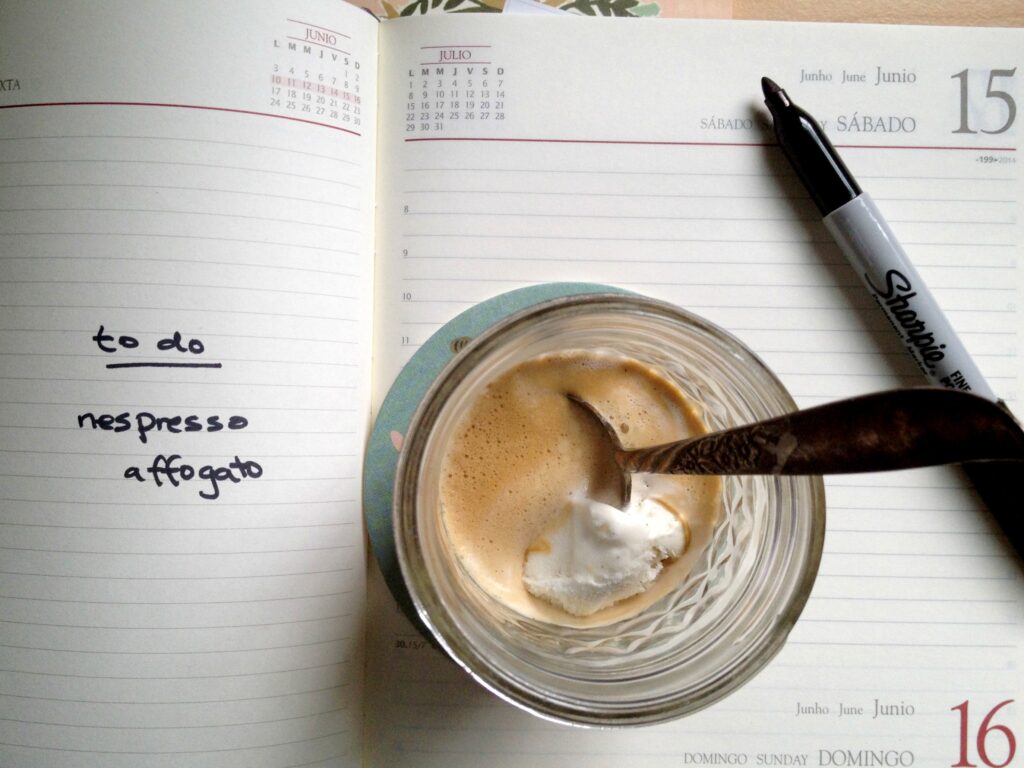 XTA
JUNIO
L M M J V S D
1 2
3 4 5 6 7 8 9
10 11 12 13 14 15 16
17 18 19 20 21 22 23
24 25 26 27 28 29 30
to do
nespresso
affogato
JULIO
L M M J V S D
1 2 3 4 5 6 7
8 9 10 11 12 13 14
15 16 17 18 19 20 21
22 23 24 25 26 27 28
29 30 31
Junho June Junio 15
SÁBADO SÁBADO
8
9
10
11
Sharpie
FINE
Junho June Junio 16
DOMINGO SUNDAY DOMINGO